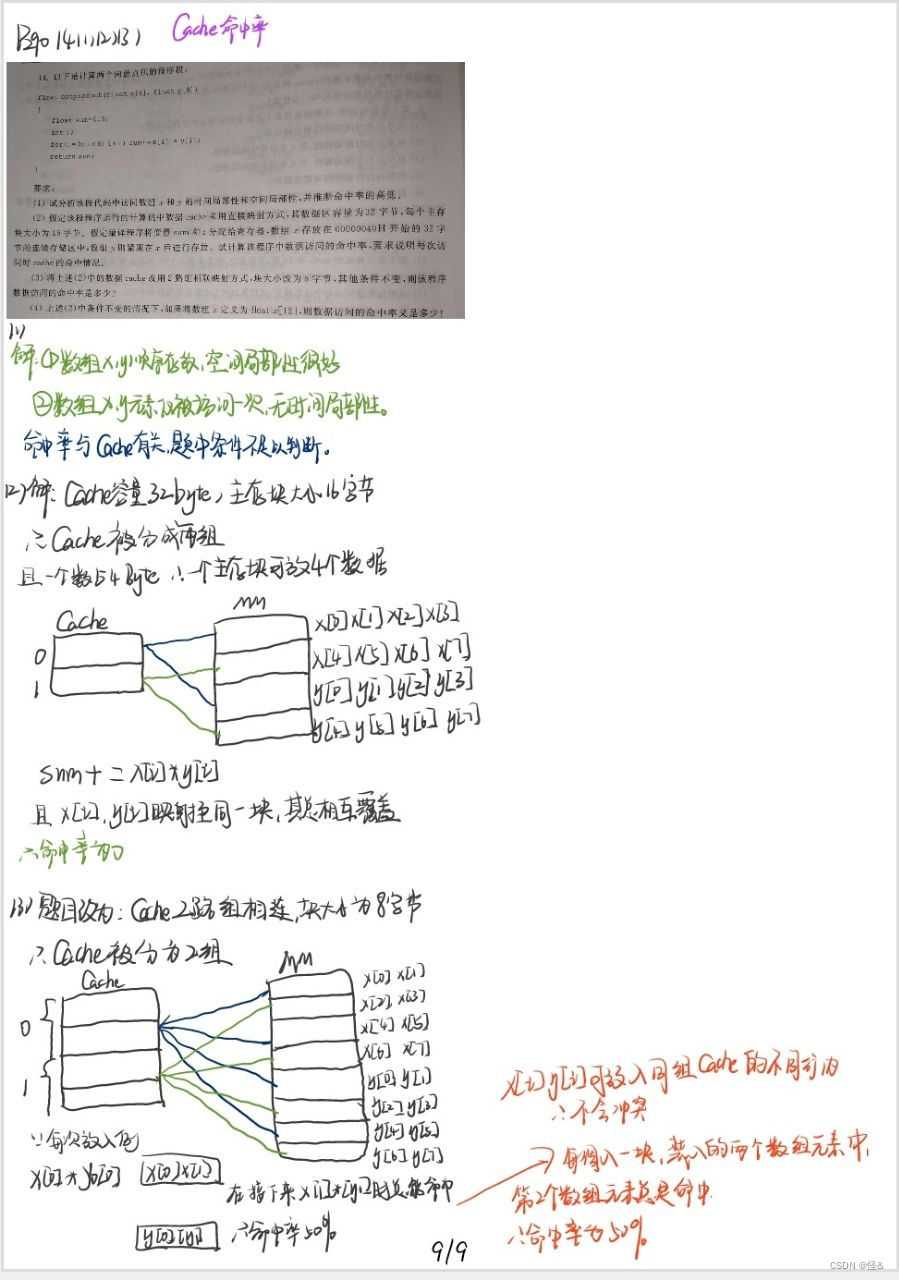 P290 14(1)(2)(3) Cache命中率
14. 以下是计算两个向量点积的程序段:
float dotproduct(float x[8], float y[8])
{
float sum=0.0;
int i;
for(i=0; i<8; i++) sum+=x[i] * y[i];
return sum;
}
要求:
(1) 试分析该段代码中访问数组 x 和 y 的时间局部性和空间局部性,并推断命中率的高低。
(2) 假定该段程序运行的计算机中数据 cache 采用直接映射方式,其数据区容量为 32 字节,每个主存
块大小为 16 字节。假定编译程序将变量 sum 和 i 分配给寄存器,数组 x 存放在 00000040H 开始的 32 字
节的连续存储区中,数组 y 则紧跟在 x 后进行存放。试计算该程序中数据访问的命中率,要求说明每次访
问时 cache 的命中情况。
(3) 将上述(2)中的数据 cache 改用 2 路组相联映射方式,块大小改为 8 字节,其他条件不变,则该程序
数据访问的命中率是多少?
(4) 上述(2)中条件不变的情况下,如果将数组 x 定义为 float x[12],则数据访问的命中率又是多少?
(1)
解:①数组x,y顺序存放,空间局部性很好
②数组x,y元素只被访问一次,无时间局部性。
命中率与Cache有关,题中条件不足以判断。
(2)解:Cache容量32byte,主存块大小16字节
∴Cache被分成两组
且一个数占4Byte ∴一个主存块可放4个数据
Cache MM
x[0] x[1] x[2] x[3]
0 x[4] x[5] x[6] x[7]
1 y[0] y[1] y[2] y[3]
y[4] y[5] y[6] y[7]
sum+=x[i]*y[i]
且x[i],y[i]映射在同一块,其总相互覆盖
∴命中率为0
(3)题目改为:Cache 2路组相连,块大小为8字节
∴Cache被分为2组
Cache MM
x[0] x[1]
x[2] x[3]
0 x[4] x[5]
x[6] x[7]
1 y[0] y[1]
y[2] y[3]
y[4] y[5]
y[6] y[7]
x[i] y[i]可放入同组Cache的不同行内
∴不会冲突
∵每次放入例
x[0]*y[0] x[0] x[1]
在接下来x[1]*y[1]时总能命中
y[0] y[1] ∴命中率50%
→每调入一块,装入的两个数组元素中,
第2个数组元素总是命中
∴命中率为50%
9/9
CSDN @怪&